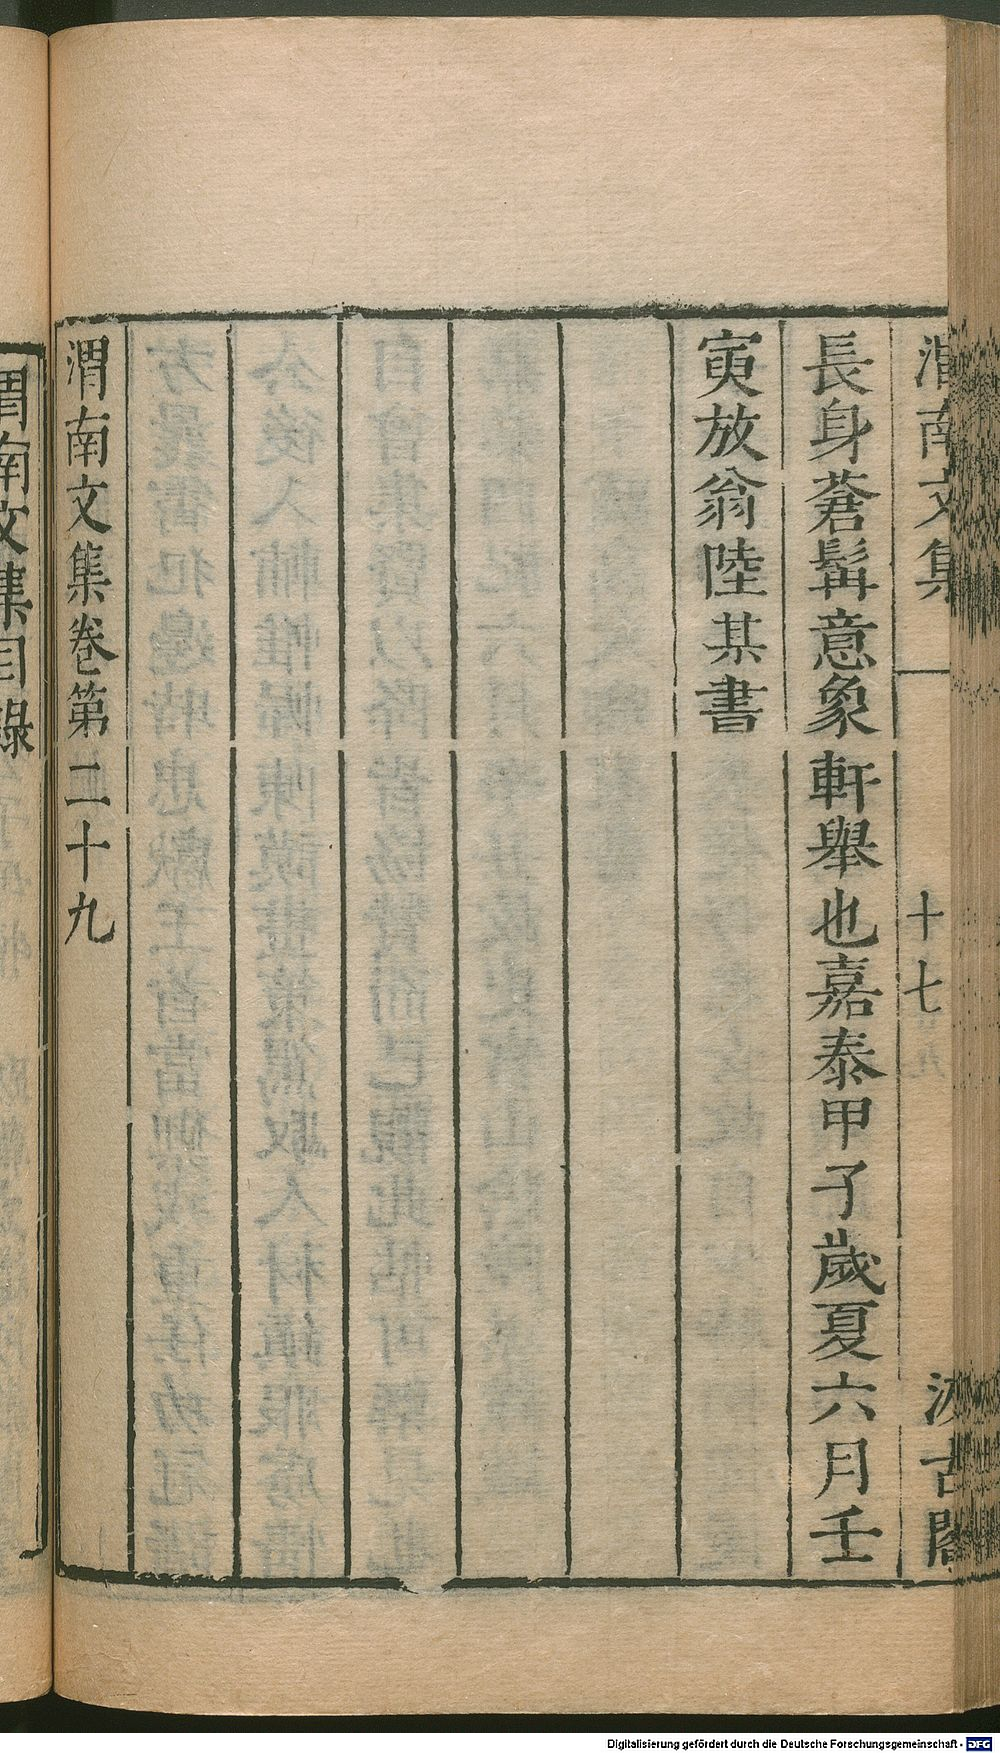 渭南文集 十七 汲古閣
長身蒼髯意象軒舉也嘉泰甲子歲夏六月壬
寅放翁陸某書
渭南文集卷第二十九
渭南文集目錄
Digitalisierung gefördert durch die Deutsche Forschungsgemeinschaft - DFG